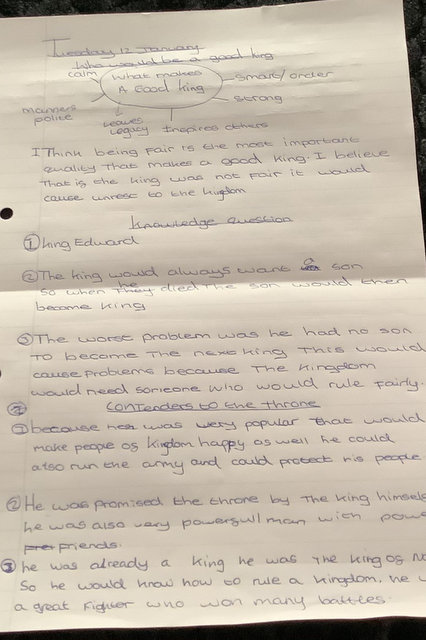 Tuesday 12 January
Who would be a good king
calm
What makes
A Good king
Smart/order
Strong
manners
polite
Leaves
Legacy
Inspires others
I Think being Fair is the most important
quality That makes a good king. I believe
That is the king was not fair it would
cause unrest to the kingdom
Knowledge question
1 king Edward
2 The king would always want a son
So when he died The son would then
become king
3 The worst problem was he had no son
To become The next king This would
cause problems because The kingdom
would need someone who would rule fairly.
Contenders to the throne
1 because he was very popular that would
make people of kingdom happy as well he could
also run the army and could protect his people
2 He was promised the throne by The king himself
he was also very powerfull man with pow
friends.
3 he was already a king he was the king of No
So he would know how to rule a kingdom. he
a great Fighter who won many battles.